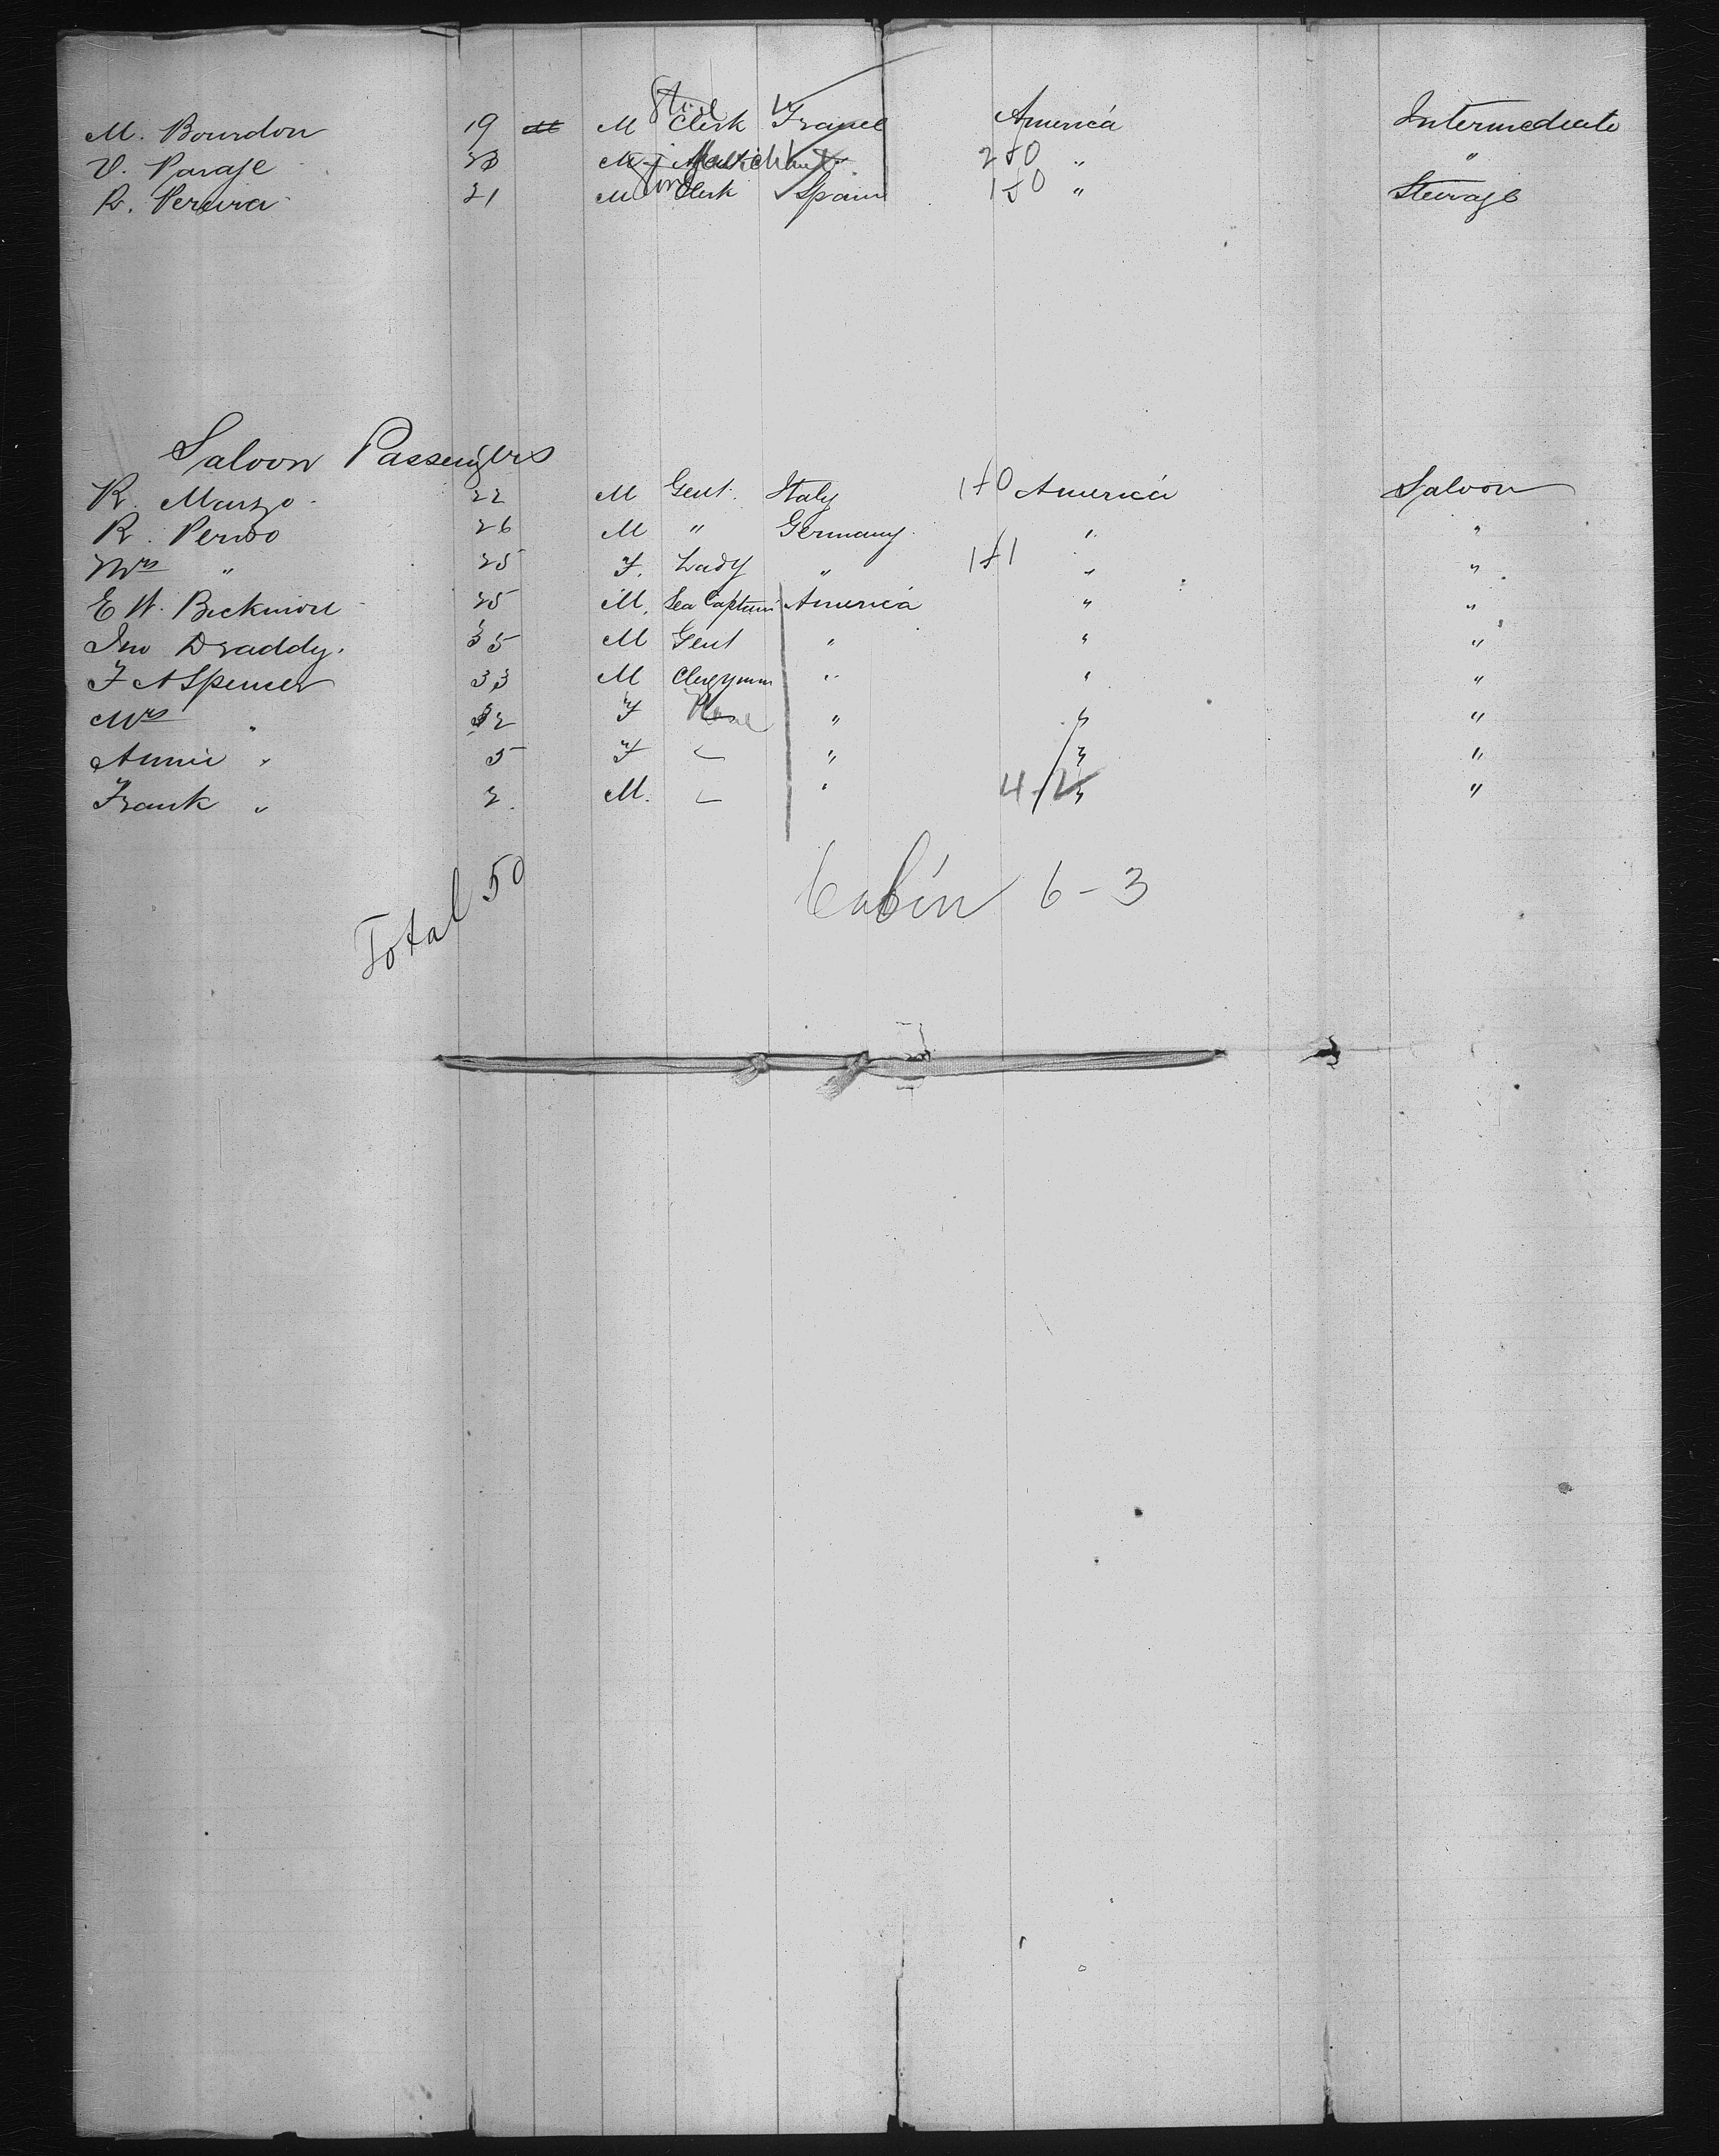 M. Bourdon 19 M Clerk France America Intermediate
V. Paraje M Merchant " 2-0 " "
R. Pereira 21 M Clerk Spain 1-0 " Steerage
Saloon Passengers
R. Marzo 22 M Gent. Italy 1-0 America Saloon
R. 26 M " Germany " "
Mrs " 25 F. Lady " 1-1 " "
E W. Bickmore 25 M. Sea Captain America " "
Jno Draddy. 35 M Gent " " "
F A Spencer 33 M Clergyman " " "
Mrs " 32 F " " "
Annie " 5 F " " "
Frank " 2. M. " 4-2 " "
Total 50
Cabin 6-3